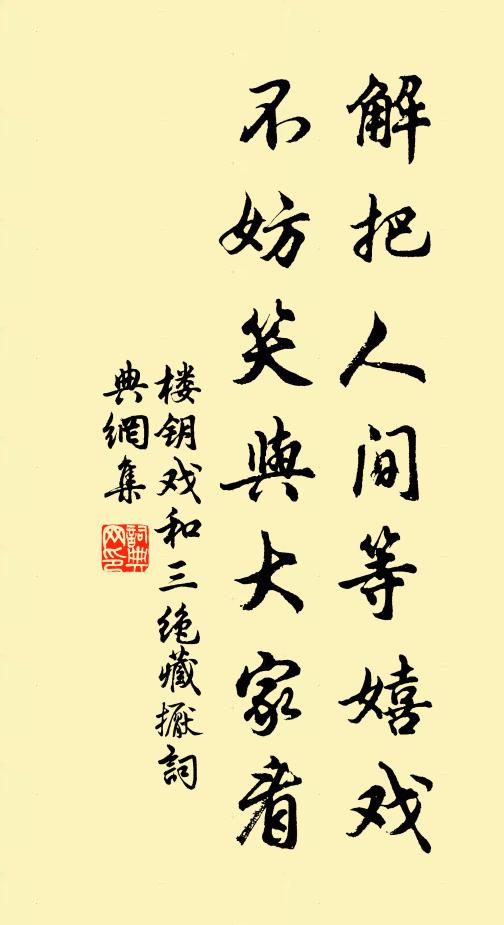 解把人间等嬉戏
不妨笑與大家看
楼钥戏和三绝藏擫詞
典網集
詞典網印